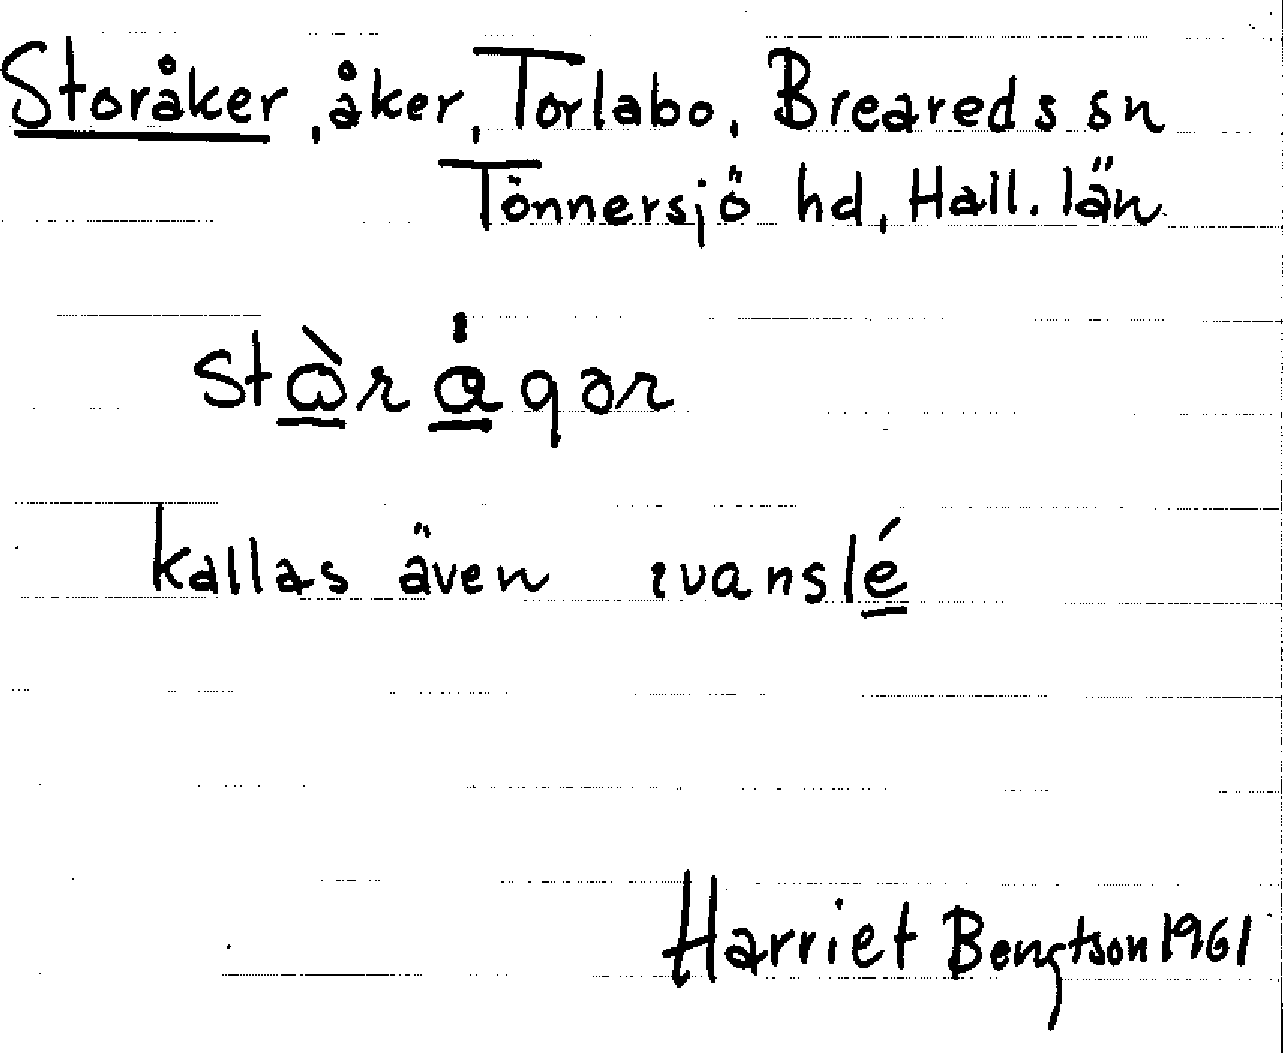 Storåker, åker, Torlabo, Breareds sn
Tönnersjö hd, Hall. län
stɷ̀rágər
kallas även ɩvanslé
Harriet Bengtson 1961